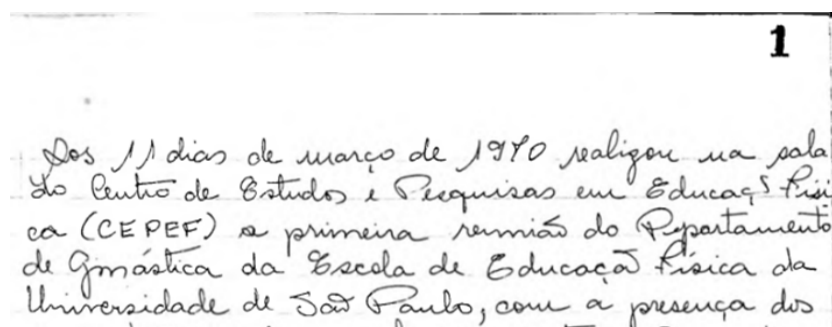 1
Aos 11 dias de março de 1970 realizou na sala
do Centro de Estudos e Pesquisas em Educaçº Físi
ca (CEPEF) a primeira reunião do Departamento
de Ginástica da Escola de Educação Física da
Universidade de São Paulo, com a presença dos